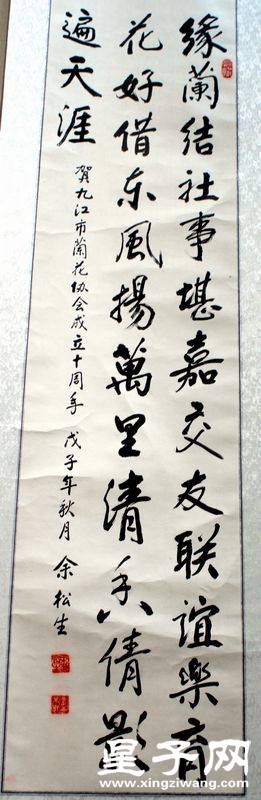 緣蘭结社事堪嘉交友联谊樂育
花好借东風揚萬里清香倩影
遍天涯
賀九江市蘭花协会成立十周年
戊子年秋月
余松生
星子网
www.xingziwang.com